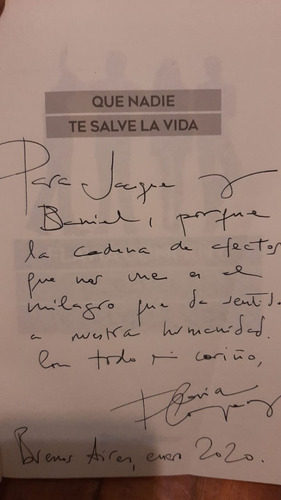 QUE NADIE
TE SALVE LA VIDA
Para Jacque y
Daniel, porque
la cadena de afectos
que nos une es el
milagro que da sentido
a nuestra humanidad.
Con todo mi cariño,
Flavia
Company
Buenos Aires, enero 2020.